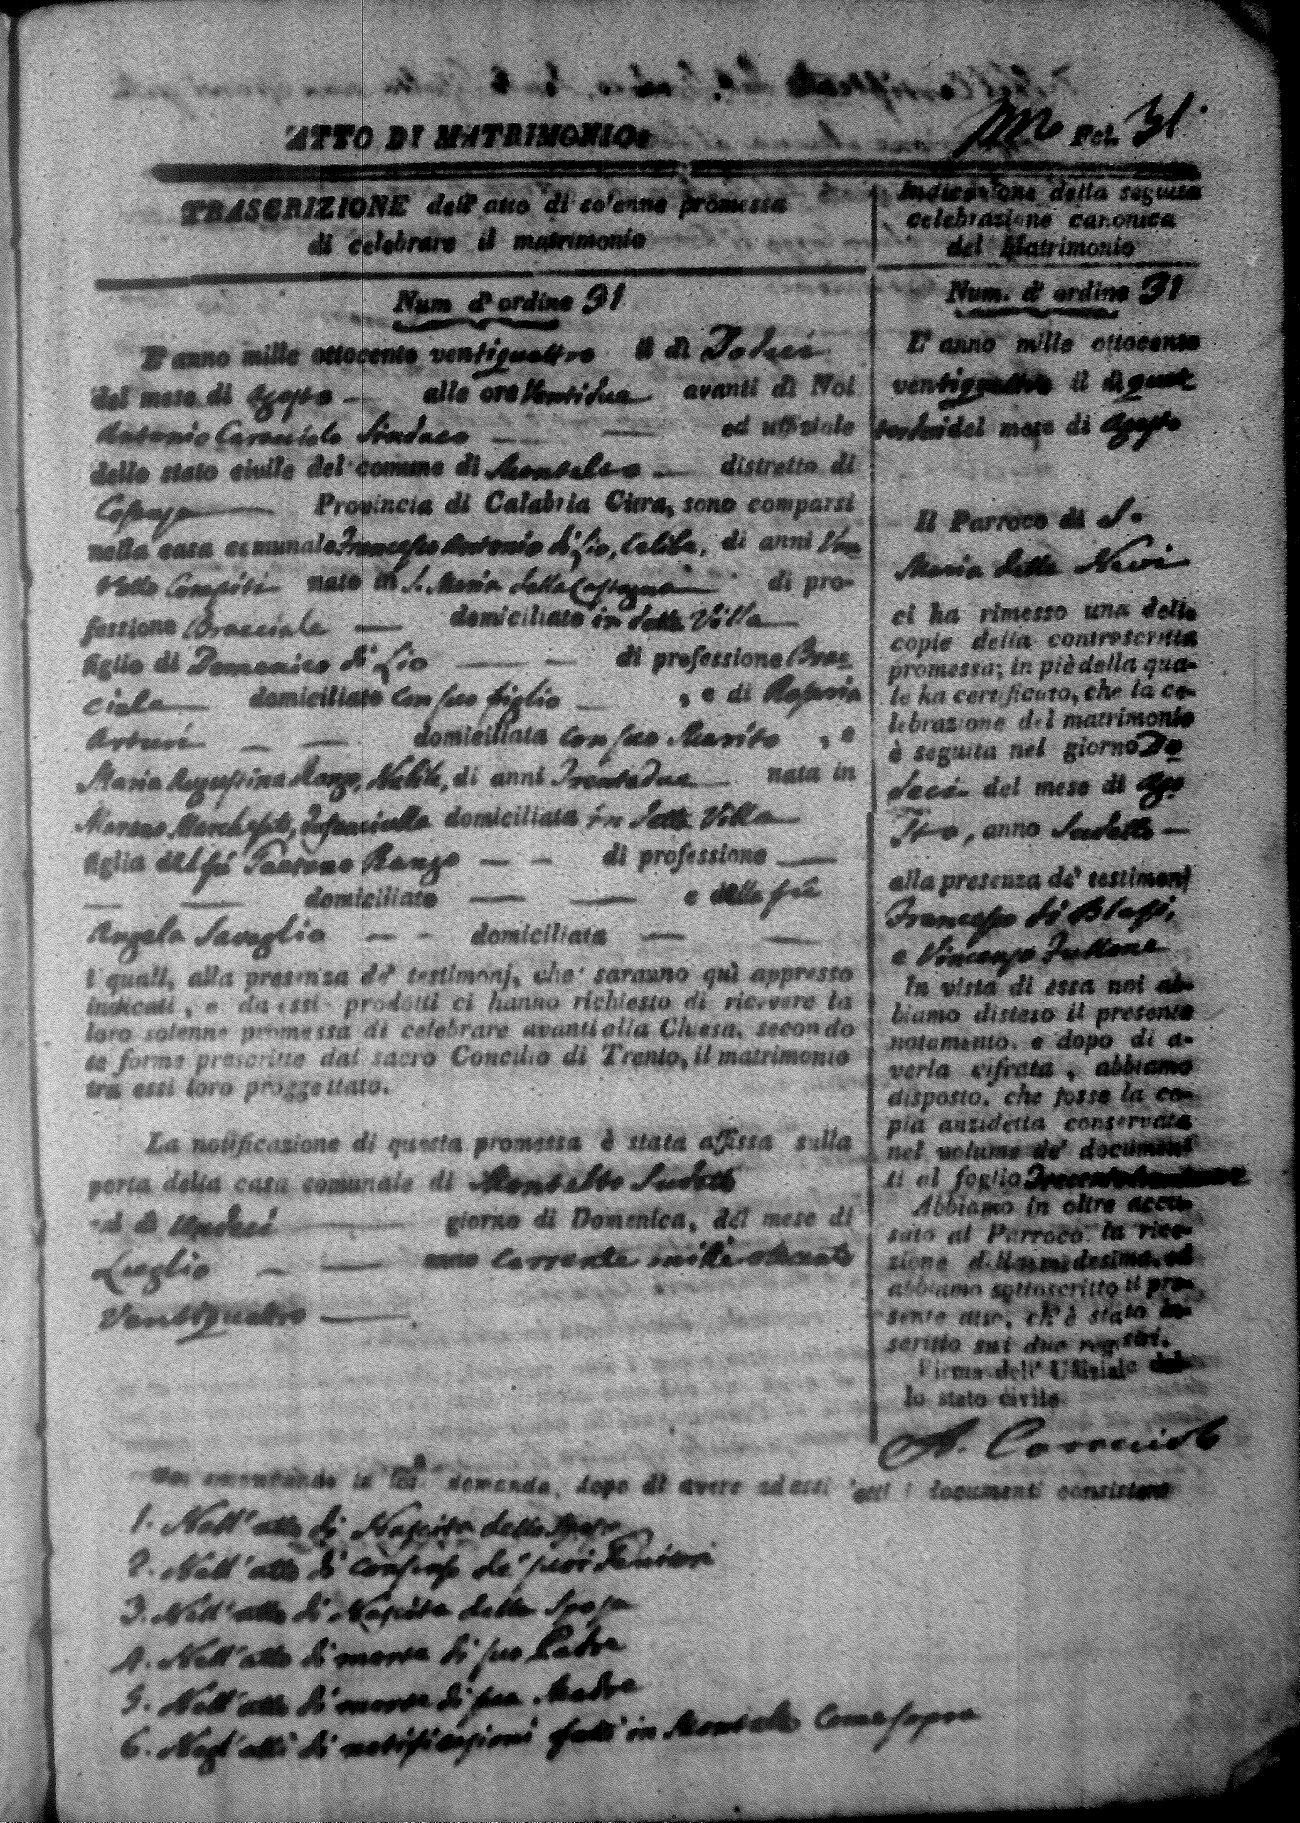 ATTO DI MATRIMONIO.
Fol. 31.
TRASCRIZIONE dell' atto di solenne promessa
di celebrare il matrimonio
Num d' ordine 31
L' anno mille ottocento ventiquattro il dì Dodeci
del mese di Agosto alle ore Ventidue avanti di Noi
Antonio Caracciolo Sindaco ed uffiziale
dello stato civile del comune di Montalto distretto di
Cosenza Provincia di Calabria Citra, sono comparsi
nella casa comunale Francesco Antonio di Lio, Celibe, di anni Ven
totto Compiti nato in S. Maria della Castagna di pro-
fessione Bracciale domiciliato in detta Villa
figlio di Domenico di Lio di professione Brac
ciale domiciliato con suo figlio , e di Rosaria
Arturi domiciliata con suo Marito , e
Maria Agostina Ranzo, Nubile, di anni Trentadue nata in
Marano Marchesato, domiciliata in detta Villa
figlia del fù Gaetano Ranzo di professione
domiciliato e della fù
Angela Saveglio domiciliata
I quali, alla presenza de' testimonj, che saranno quì appresso
indicati, e da essi prodotti ci hanno richiesto di ricevere la
loro solenne promessa di celebrare avanti alla Chiesa, secondo
le forme prescritte dal sacro Concilio di Trento, il matrimonio
tra essi loro proggettato.
La notificazione di questa promessa è stata affissa sulla
porta della casa comunale di Montalto Sudetto
nel dì Undeci giorno di Domenica, del mese di
Luglio anno corrente mille ottocento
Ventiquattro
Indicazione della seguita
celebrazione canonica
del Matrimonio
Num. d' ordine 31
L' anno mille ottocento
ventiquattro il dì quat
tordeci del mese di Agosto
Il Parroco di S.
Maria della Nevi
ci ha rimesso una delle
copie della controscritta
promessa; in piè della qua-
le ha certificato, che la ce-
lebrazione del matrimonio
è seguita nel giorno Do
deci del mese di Ago
sto, anno Sudetto
alla presenza de' testimonj
Francesco di Blasi,
e Vincenzo
In vista di essa noi ab-
biamo disteso il presente
notamento, e dopo di a-
verla cifrata, abbiamo
disposto, che fosse la co-
pia anzidetta conservata
nel volume de' documen-
ti al foglio
Abbiamo in oltre accu-
sato al Parroco la rice-
zione della medesima, ed
abbiamo sottoscritto il pre-
sente atto, ch' è stato in-
scritto sui due registri.
Firma dell' Uffiziale del-
lo stato civile
A. Caracciolo
Noi secondando la loro domanda, dopo di avere ad essi letti i documenti consistenti
1. Nell' atto di Nascita dello Sposo
2. Nell' atto di consenso de' suoi Genitori
3. Nell' atto di Nascita della Sposa
4. Nell' atto di morte di suo Padre
5. Nell' atto di morte di sua Madre
6. Negl' atti di notificazioni fatti in Montalto Come sopra